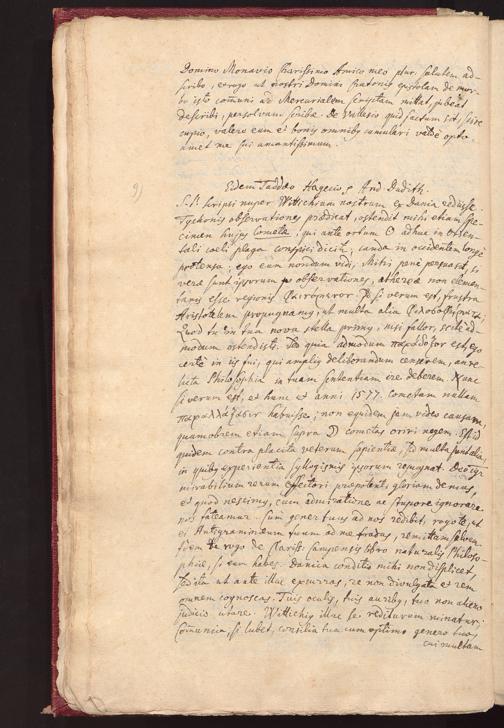 Domino Monavio Charissimo Amico meo plur. salutem ad-
scribo, erogo ut nostri Domini Cratonis epistolam de mor-
bo isto comuni ad Mercurialem scriptam mittat, jubeat
describi, persolvam scribæ. De Vrillesio quid factum sit, scire
cupio, valere eum et bonis omnibus cumulari valde opto
amet me sui amantissimum.
9)
Eidem Taddæo Hagecio, And. Dudith.
S. P. scripsi nuper Wittichium nostrum ex Dania rediisse.
Tychonis observationes prædicat, ostendit mihi etiam spe-
cimen hujus Cometæ, qui ante ortum ☉ adhuc in orien-
tali cœli plaga conspici dicitur, cauda in occidentem longe
protensa; ego eum nondum vidi, Mihi pene persuasit, si
veræ sunt ipsorum observationes, æthereæ non elemen-
taris esse regionis φαινόμενον. Id si verum est, frustra
Aristotelem propugnamus, ut multa alia
Quod tu in tua nova stella primus, nisi fallor, scite ad-
modum ostendisti. Id quia admodum παράδοξον est, ego
certe in iis fui, qui amplius deliberandum censerem, an re-
licta Philosophia in tuam sententiam ire deberem. Nunc
si verum est, et hunc et anni 1577. cometam nullam
παράλλαξιν habuisse; non equidem jam video causam,
quamobrem etiam supra ☽ cometas oriri negem. Est id
quidem contra placita veterum sapientiæ, sed multa sunt alia
in quibus experientia syllogismis ipsorum repugnat. Deo igr
mirabilium rerum effectori præpotenti gloriam demus,
et quod nescimus, cum admiratione ac stupore ignorare
nos fateamur. Cum gener tuus ad nos redibit, rogo te, ut
ei Antigramineum tuum ad me tradas, remittam salva
fide. te rogo de Clariss. Campensis libro naturalis Philoso-
phiæ, si eum habes. Danica conditio mihi non displicet
sed ita ut ante illuc excurras, re non divulgata et rem
omnem cognoscas. Tuis oculis, tuis auribus, tuo non alieno
judicio utare. Wittichius illuc se rediturum minatur.
Comunica, si lubet, consilia tua cum optimo genero tuo,
cui multam